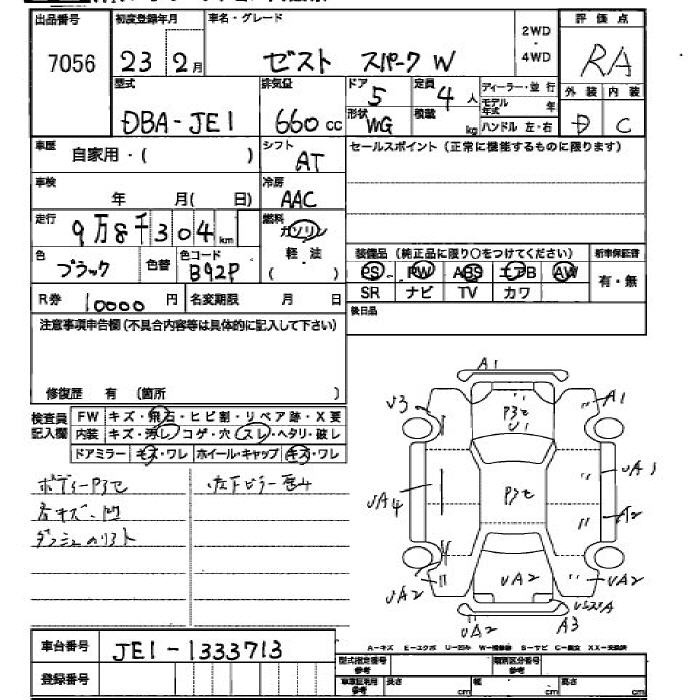 出品番号 初度登録年月 車名・グレード 2WD ・ 4WD 評価点
7056 23 2月 ゼスト スパーク W RA
型式 排気量 ドア 定員 ディーラー・並行 外装 内装
DBA-JE1 660cc 5 4人 モデル年式 年 D C
形状 WG 積載 kg ハンドル 左・右
車歴 自家用・( ) シフト AT セールスポイント(正常に機能するものに限ります)
車検 年 月( 日) 冷房 AAC
走行 9万8千304km 燃料 ガソリン 軽・油 ( )
色 ブラック 色替 色コード B92P
装備品(純正品に限り○をつけてください) 新車保証書
PS PW ABS エアB AW 有・無
SR ナビ TV カワ
R券 10000円 名変期限 月 日 後日品
注意事項申告欄(不具合内容等は具体的に記入して下さい)
修復歴 有 (箇所 )
検査員記入欄 FW キズ・飛石・ヒビ割・リペア跡・X要
内装 キズ・汚レ・コゲ・穴・スレ・ヘタリ・破レ
ドアミラー キズ・ワレ ホイール・キャップ キズ・ワレ
ボディーP3セ
各キズ・凹
A1
V3 P3セ U1 A1
UA4 P3セ UA1
A2
UA2 UA2 UA2
UA2 A3
A-キズ E-エクボ U-凹み W-補修跡 S-サビ C-腐食 XX-交換済
車台番号 JE1-1333713
登録番号
型式指定番号 参考 類別区分番号 参考
車庫証明用 参考 長さ cm 幅 cm 高さ cm